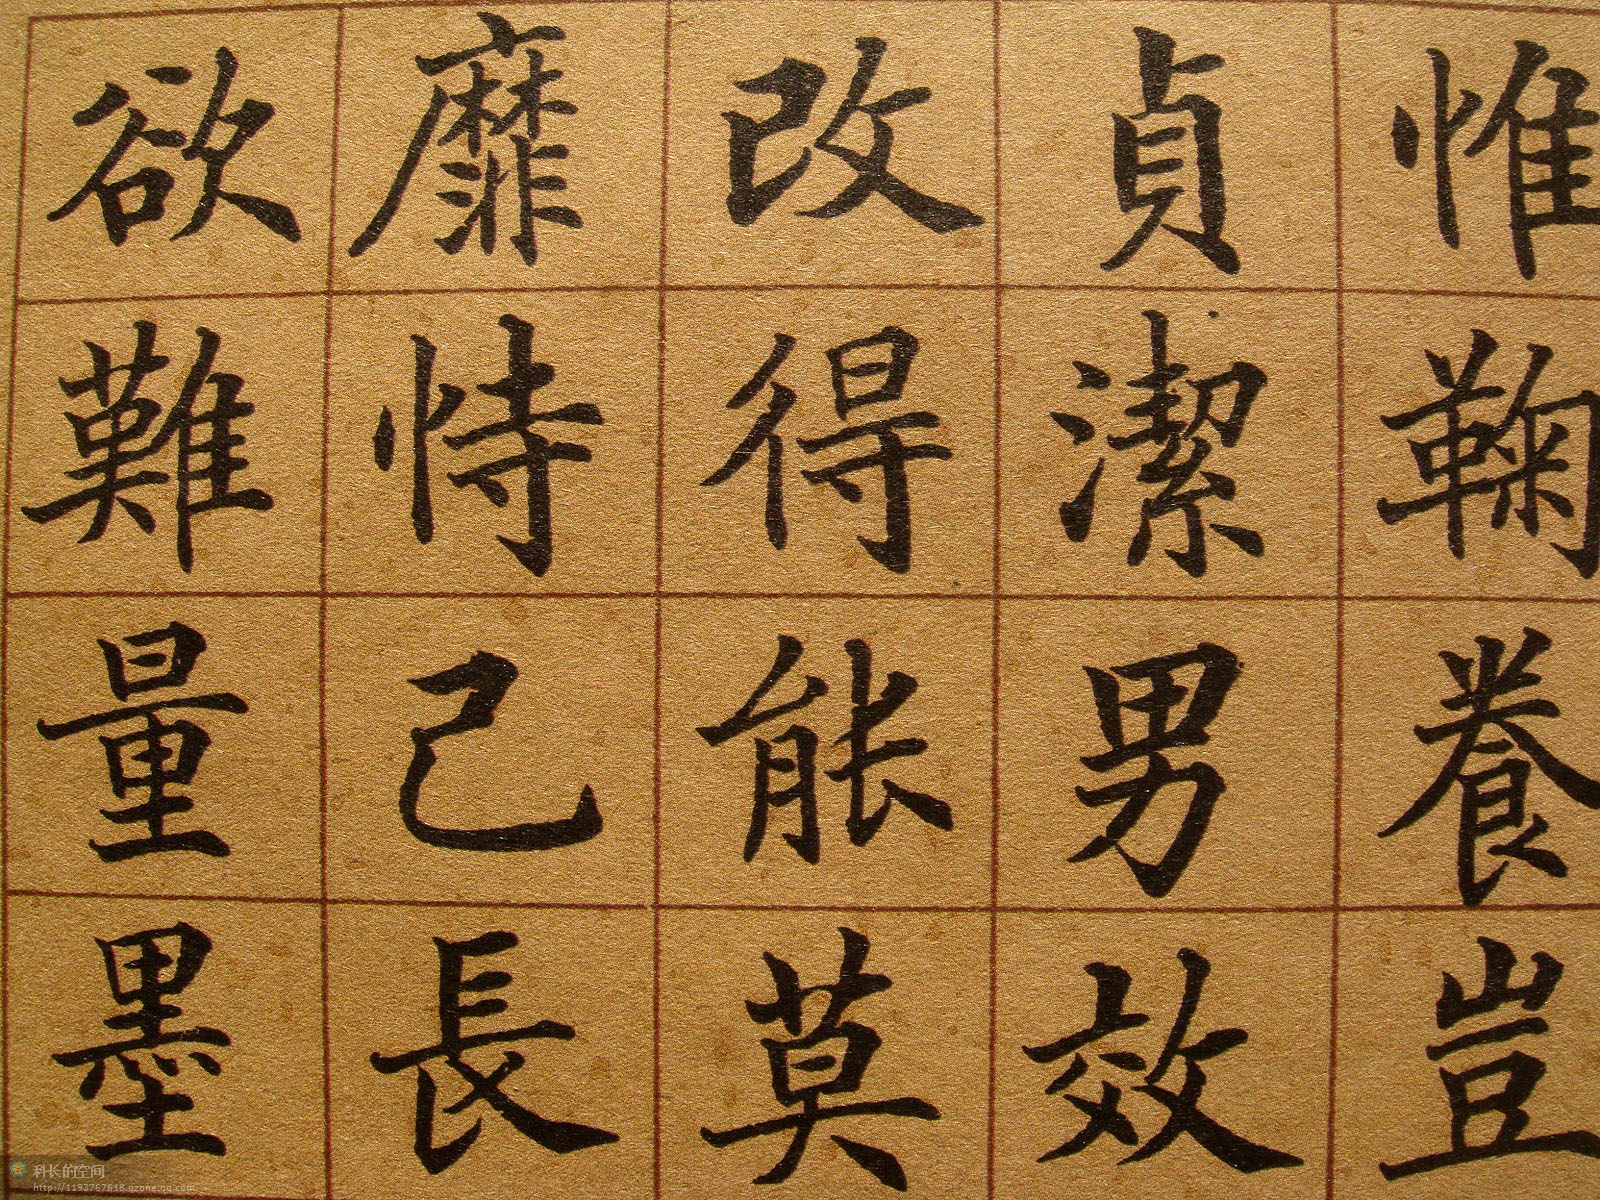 惟鞠養豈
貞潔男效
改得能莫
靡恃己長
欲難量墨
科长的空间
http://1193767618.qzone.qq.com